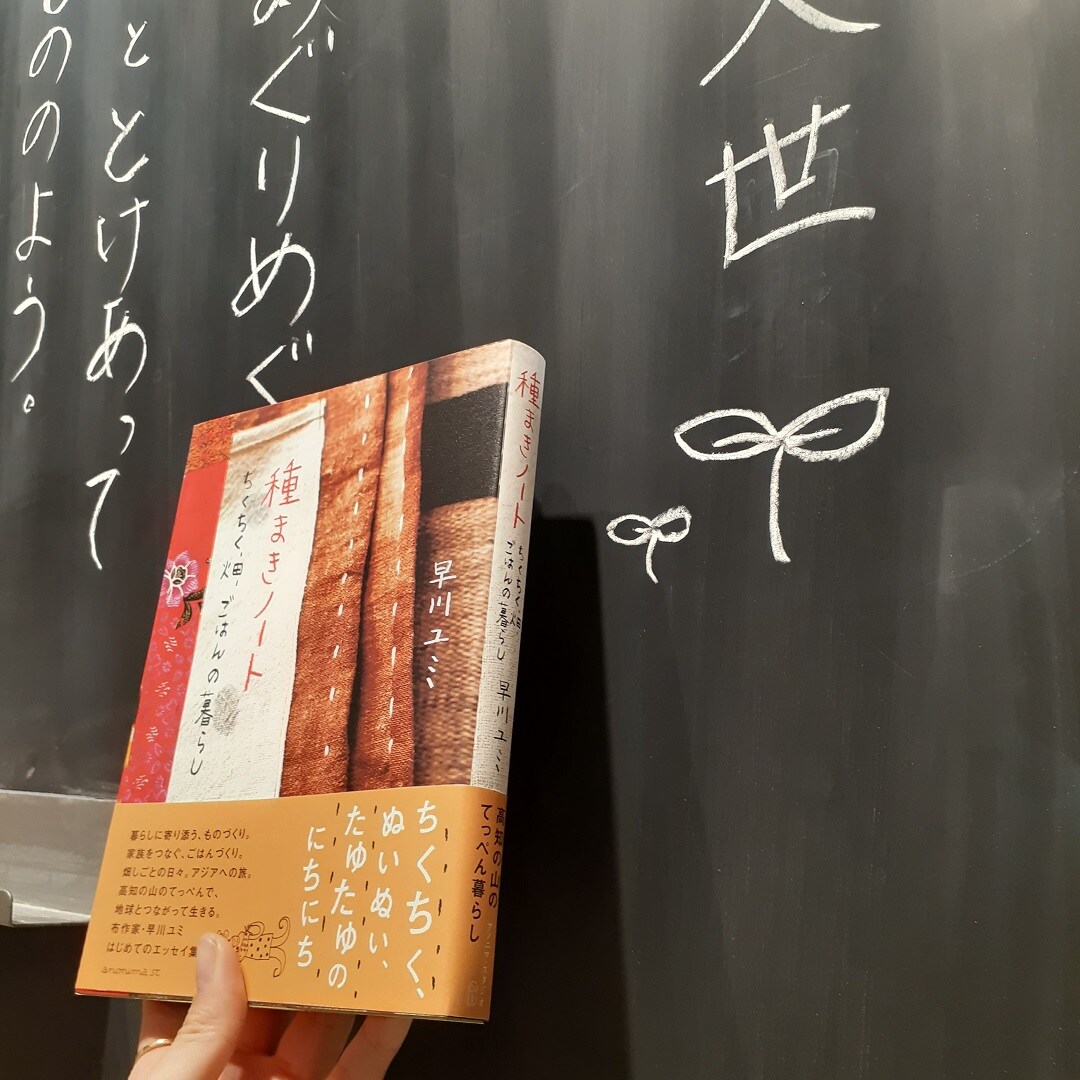 世
めぐりめぐ
ととけあって
もののよう。
種まきノート
ちくちく、畑、ごはんの暮らし
早川ユミ
種まきノート
ちくちく、畑、
ごはんの暮らし
早川ユミ
ちくちく、
ぬいぬい、
たゆたゆの
にちにち
暮らしに寄り添う、ものづくり。
家族をつなぐ、ごはんづくり。
畑しごとの日々。アジアへの旅。
高知の山のてっぺんで、
地球とつながって生きる。
布作家・早川ユミ
はじめてのエッセイ集
anonima st.
高知の山の
てっぺん暮らし
アノニマ・スタジオ